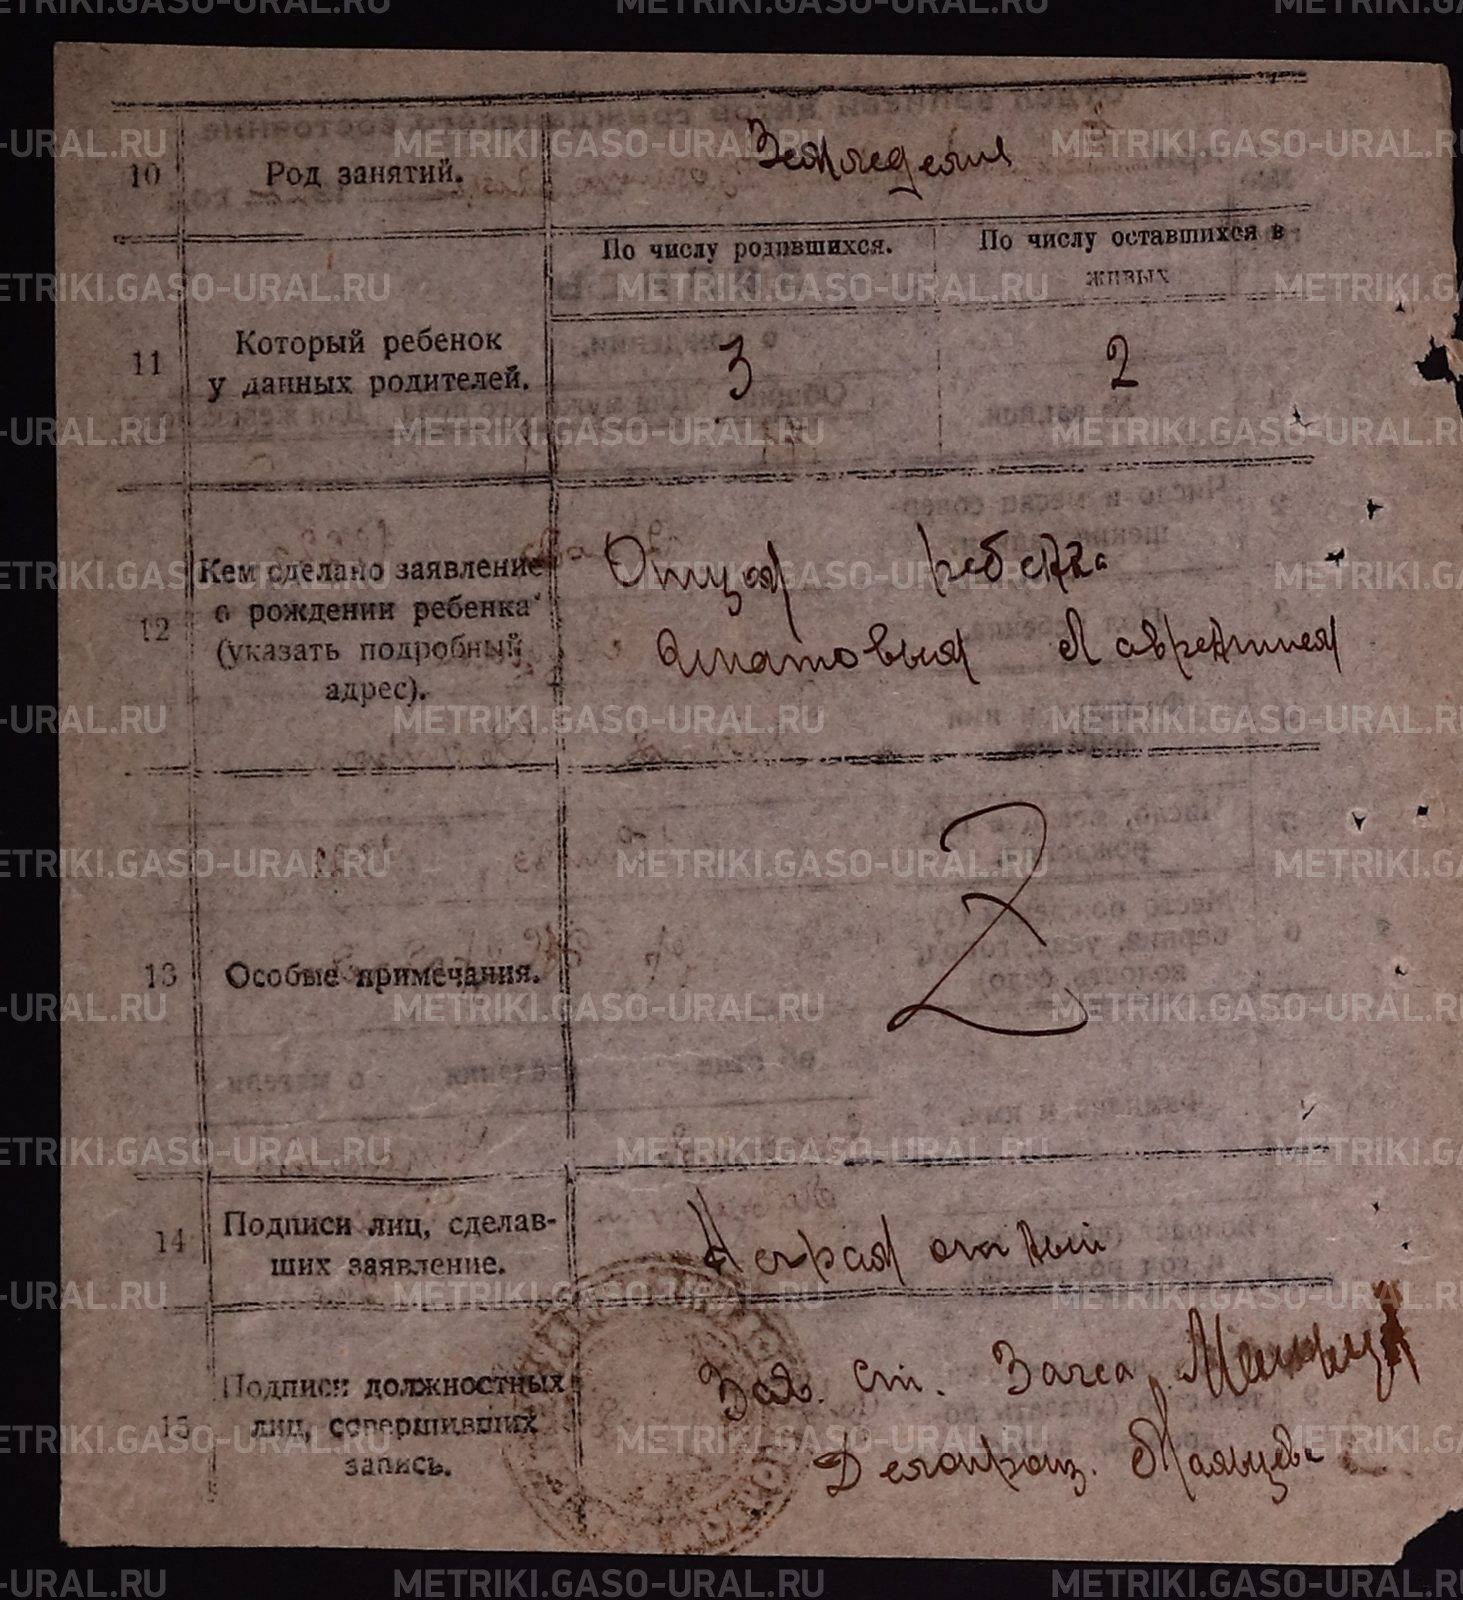 10 Род занятий. Земледелия
11 Который ребенок у данных родителей.
По числу родившихся. По числу оставшихся в живых
3 2
12 Кем сделано заявление о рождении ребенка (указать подробный адрес).
Отцом ребенка
Лаврентием
13 Особые примечания.
14 Подписи лиц, сделавших заявление. Неграмотный
15 Подписи должностных лиц, совершивших запись.
Зав. ст. Загса
Делопроиз.
METRIKI.GASO-URAL.RU